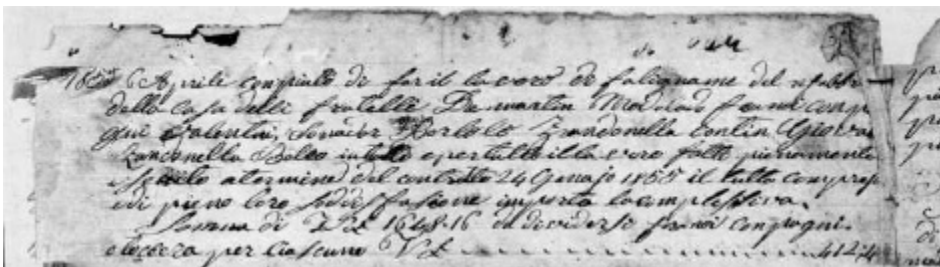 1855 6 Aprile compiuto di far il lavoro di falegname del
della casa delli fratelli De martin Modolado fra noi comp
gni Valentin, Bortolo Zandonella contin Giova
Zandonella Bolco in tutto e per tutto il lavoro fatto pienamente
a termine del contratto 24 Genajo 1855 il tutto compreso
e di pieno loro sodisfasione importa la complessiva
Somma di 1648-16 da dividersi fra noi compagni
e tocera per ciascuno VL 412,4